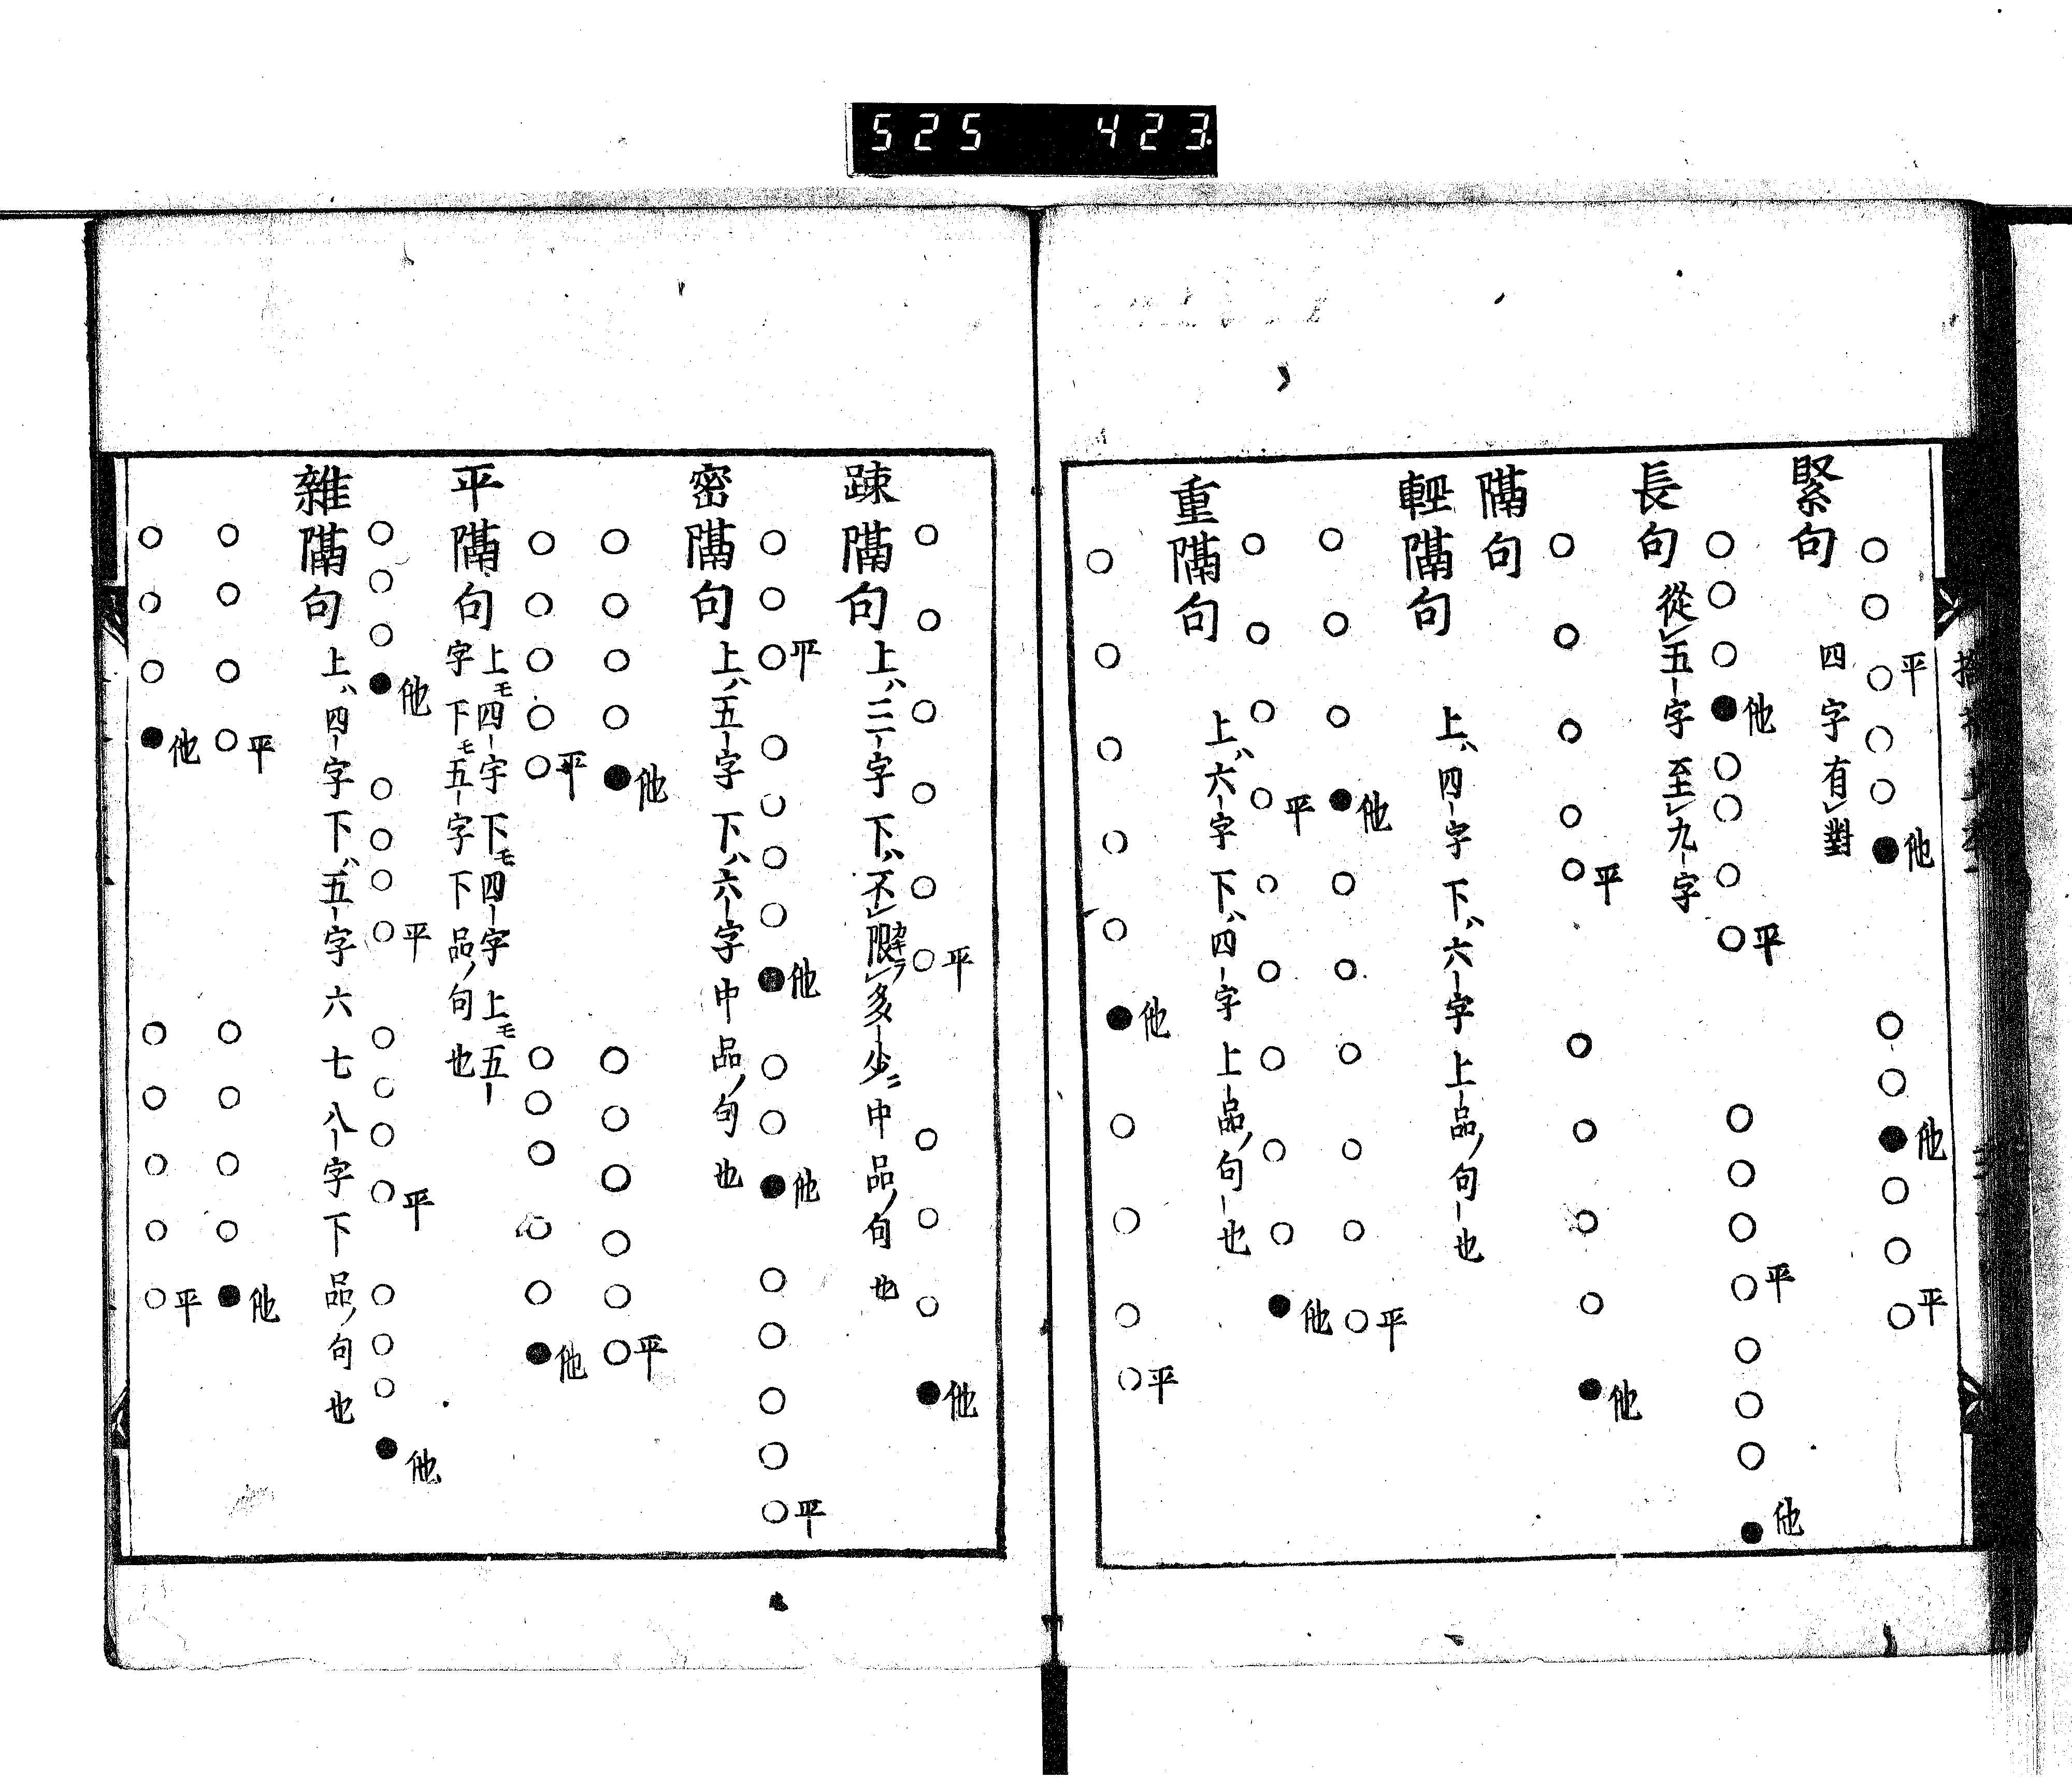 525 423
○○○平○○●他 ○○●他○○○平
緊句 四字有對
○○○●他○○○○平 ○○○○平○○○●他
長句 從五字至九字
○○○○○平 ○○○○●他
隔句
輕隔句 上ハ四字下ハ六字上品ノ句也
○○○●他○○○○○○平
○○○○平○○○○○●他
重隔句 上ハ六字下ハ四字上品ノ句也
○○○○○●他○○○○平
○○○○○○平 ○○○●他
踈隔句 上ハ三字下ハ不限カキラ多少ニ中品ノ句也
○○○平○○○○●他 ○○●他○○○○○平
密隔句 上ハ五字下ハ六字中品ノ句也
○○○○●他 ○○○○○○平
○○○○○平 ○○○○○●他
平隔句 上モ四字下モ四字上モ五
字下モ五字下品ノ句也
○○○●他○○○○平 ○○○○平○○○●他
雜隔句 上ハ四字下ハ五字六七八字下品ノ句也
○○○○平 ○○○○●他
○○○●他 ○○○○○平